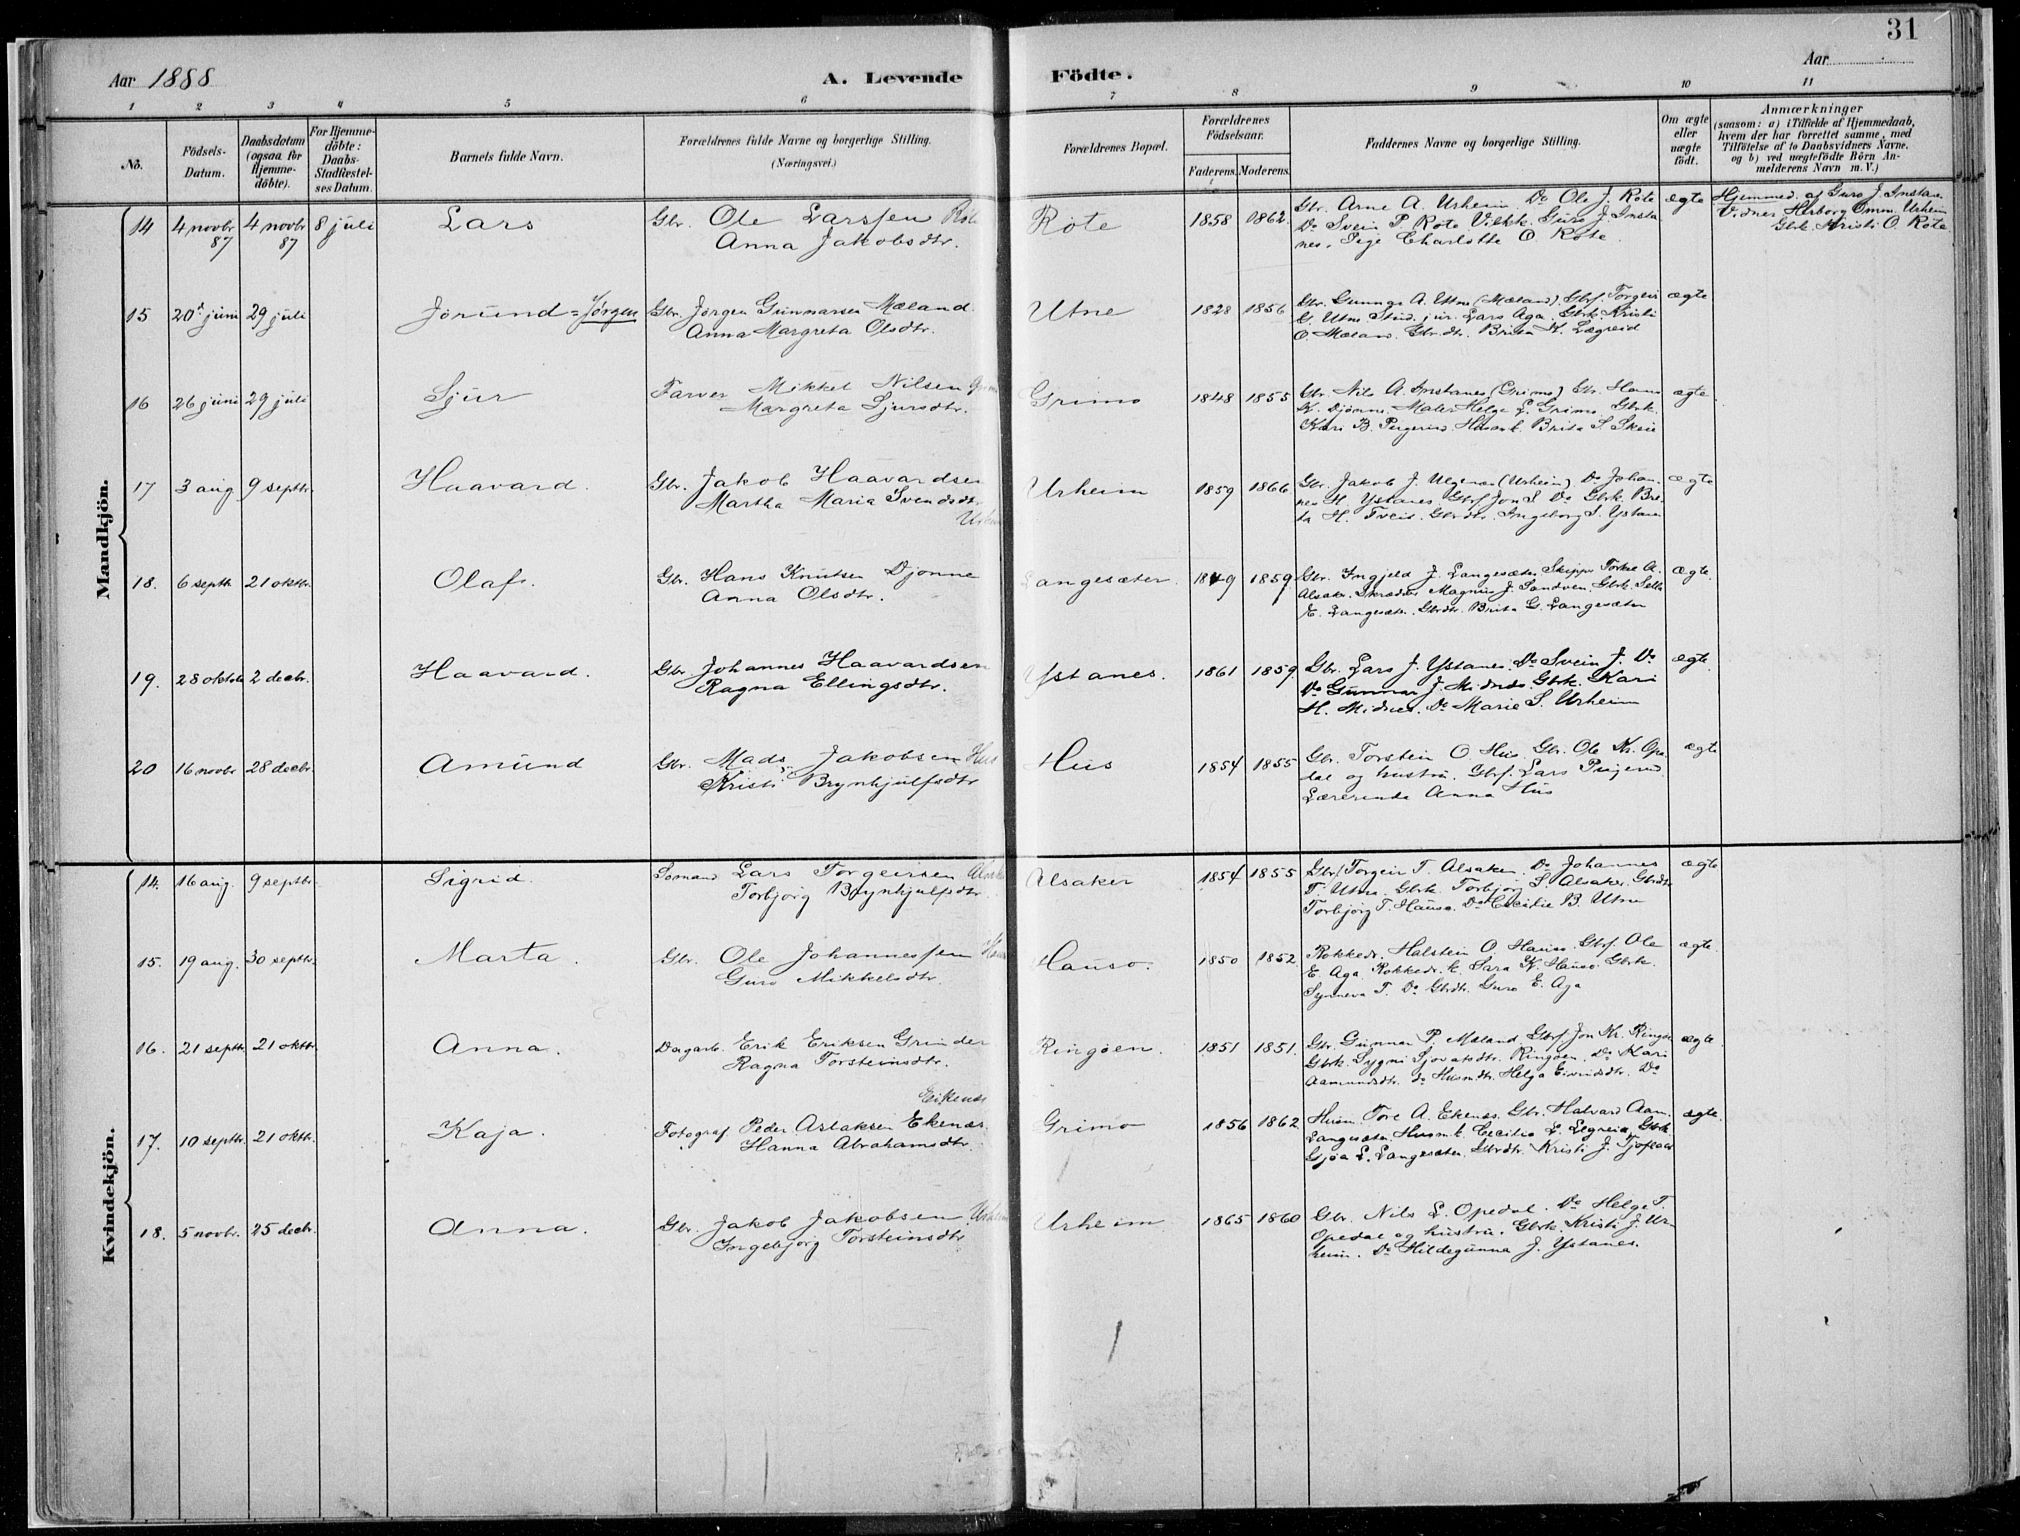 31
Aar 1888
A. Levende Födte.
Aar
1 2 3 4 5 6 7 8 9 10 11
No.
Födsels-Datum.
Daabsdatum (ogsaa for Hjemme-döbte).
For Hjemme-döbte: Daabs-Stadfæstel-ses Datum.
Barnets fulde Navn.
Forældrenes fulde Navne og borgerlige Stilling. (Næringsvei.)
Forældrenes Bopæl.
Forældrenes Födselsaar.
Faderens. Moderens.
Faddernes Navne og borgerlige Stilling.
Om ægte eller uægte födt.
Anmærkninger
(saasom: a) i Tilfælde af Hjemmedaab,
hvem der har forrettet samme, med
Tilföielse af to Daabsvidners Navne.
og b) ved uægtefödte Börn An-
melderens Navn m. V.)
Mandkjön.
14 4 novbr 87 4 novbr 87 8 juli Lars Gbr. Ole Larssen Rôte
Anna Jakobsdtr.
Rôte 1858 1862
Gbr. Arne A. Urheim. Do Ole J. Rôte
Do Svein P. Rôte Guro J. Insta
nes. Pige Charlotte O. Rôte
ægte
Hjemmed. af Guro J. Instanes
Vidner Herborg Omm. Urheim
Gbrk. Kristi O. Rôte
15 20d juni 29 juli Jörund = Jørgen Gbr. Jørgen Gunnarsen Mæland
Anna Margreta Olsdtr.
Utne 1828 1856
Gbr. A. Utne (Mæland). Gbrf. Torgeir
G. Utne Stud. jur. Lars Aga. Gbrk. Kristi
O. Mæland. Gbrdtr. Brita K. Lægreid
ægte
16 26 juni 29 juli Sjur Farver Mikkel Nilsen
Margreta Sjursdtr.
Grimo 1848 1855
Gbr. Nils A. Instanes (Grimo) Gbr. Hans
K. Djönne. Maler Helge L. Grimo. Gbrk.
Kari B. Husmk. Brita S. Skeie
ægte
17 3 aug. 9 septbr. Haavard. Gbr. Jakob Haavardsen
Martha Maria Svendsdtr
Urheim
Urheim 1859 1866
Gbr. Jakob J. (Urheim) Do Johan-
nes H. Ystanes. Gbrf. Jon S. Do Gbrk. Bri-
ta H. Tveit. Gbrdtr. Ingeborg S. Ystanes
ægte
18. 6 septbr. 21 oktbr. Olaf. Gbr. Hans Knutsen Djönne
Anna Olsdtr.
Langesæter. 1849 1859.
Gbr. Ingjeld J. Langesæter. Skipper Torkel A.
Alsaker. Skrædder Magnus J. Sandven. Gbrk.
E. Langesæter. Gbrdtr. Brita G. Langesæter
ægte.
19. 28 oktbr 2 decbr. Haavard. Gbr. Johannes Haavardsen
Ragna Ellingsdtr.
Ystanes. 1861 1859
Gbr. Lars J. Ystanes. Do Svein J. Do
Do Gunnar J. Midnes. Gbrk. Kari
H. Midnes. Do Marie S. Urheim
ægte.
20 16 novbr 28 decbr. Amund Gbr. Mads Jakobsen Hus
Kristi Brynhjulfsdtr
Hus 1854 1855
Gbr. Torstein O Hus. Gbr. Ole Kr. Ope-
dal og hustru. Gbrf. Lars
Lærerinde Anna Hus
ægte
Kvindekjön.
14. 16 aug. 9 septbr. Sigrid. Sømand Lars Torgeirsen Alsaker
Torbjörg Brynhjulfsdtr.
Alsaker 1854 1855
Gbr. Torgeir T. Alsaker. Do Johannes
T. Utne. Gbrk. Torbjörg S. Alsaker. Gbrdtr
Torbjörg T. Hauso. Do Cecilie B. Utne
ægte
15. 19 aug. 30 septbr. Marta. Gbr. Ole Johannessen
Guro Mikkelsdtr.
Hauso. 1850 1852
Rokkedr. Halstein O. Hauso. Gbrf. Ole
E. Aga. Rokkedr. k. Sara K. Hauso. Gbrk.
Synneva T. Do Gbrdtr. Guro E. Aga
ægte.
16. 21 septbr 21 oktbr Anna. Dagarb. Erik Eriksen Grinder
Ragna Torsteinsdtr.
Ringöen. 1851 1851.
Gbr. Gunnar P. Mæland. Gbrf. Jon Kr. Ringöen
Gbrk. Sygni Sjovatsdtr. Ringöen. Do Kari
Aamundsdtr. do Husmdtr. Helga Eivindsdtr. Do
ægte.
17. 10 septbr. 21 oktbr. Kaja. Eikenæs
Fotograf Peder Aslaksen Ekenæs
Hanna Abrahamsdtr.
Grimo 1856 1862
Husm. Tore A. Ekenæs. Gbr. Halvard Aam.
Langesæter. Husmk. Cecilia L. Legreid. Gbrk.
Gjöa L. Langesæter. Gbrdtr. Kristi J. Tjoflaat
ægte.
18. 5 novbr. 25 decbr. Anna. Gbr. Jakob Jakobsen Urheim
Ingebjörg Torsteinsdtr
Urheim 1865 1860
Gbr. Nils L. Opedal. Do Helge T.
Opedal og hustru. Gbrk. Kristi J. Ur-
heim. Do Hildegunna J. Ystanes.